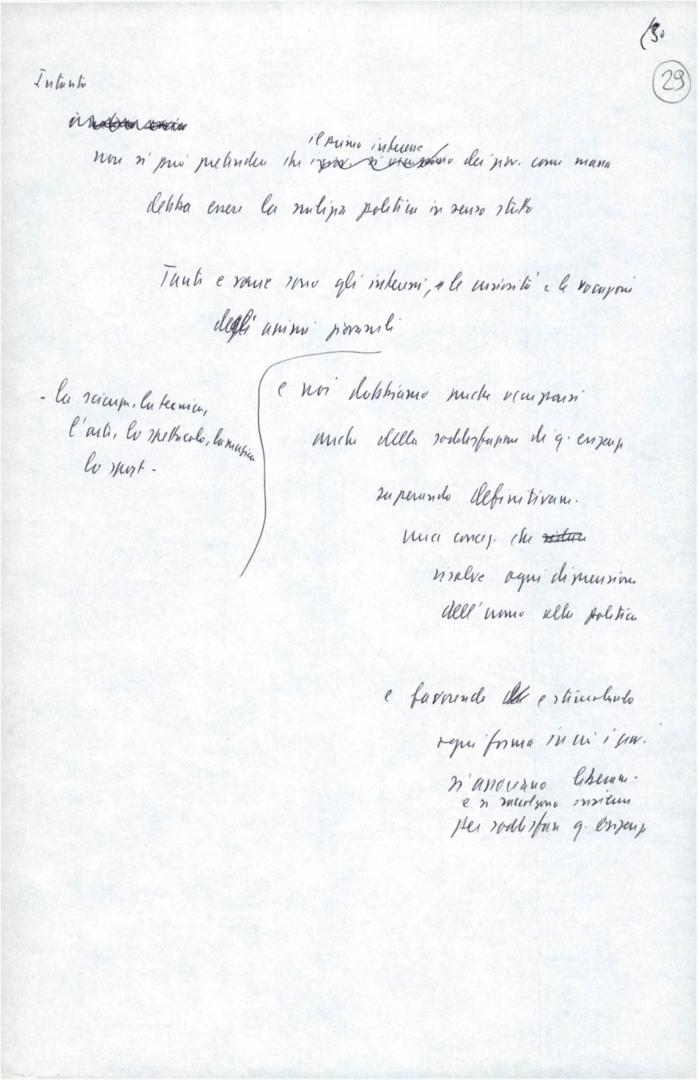 29
Intanto
il primo interesse
non si può pretendere che dei giov. come massa
debba essere la politica in senso stretto
Tanti e sono gli interessi, le curiosità e le vocazioni
degli animi giovanili
- la scienza, la tecnica,
l'arte, lo spettacolo, la musica
lo sport -
e noi dobbiamo anche occuparci
anche della soddisfazione di q. esigenze
superando definitivam.
una concez. che
risolve ogni dimensione
dell'uomo nella politica
e favorendo e stimolando
ogni forma in cui i giov.
si associano liberam.
e si insieme
per soddisfare q. esigenze